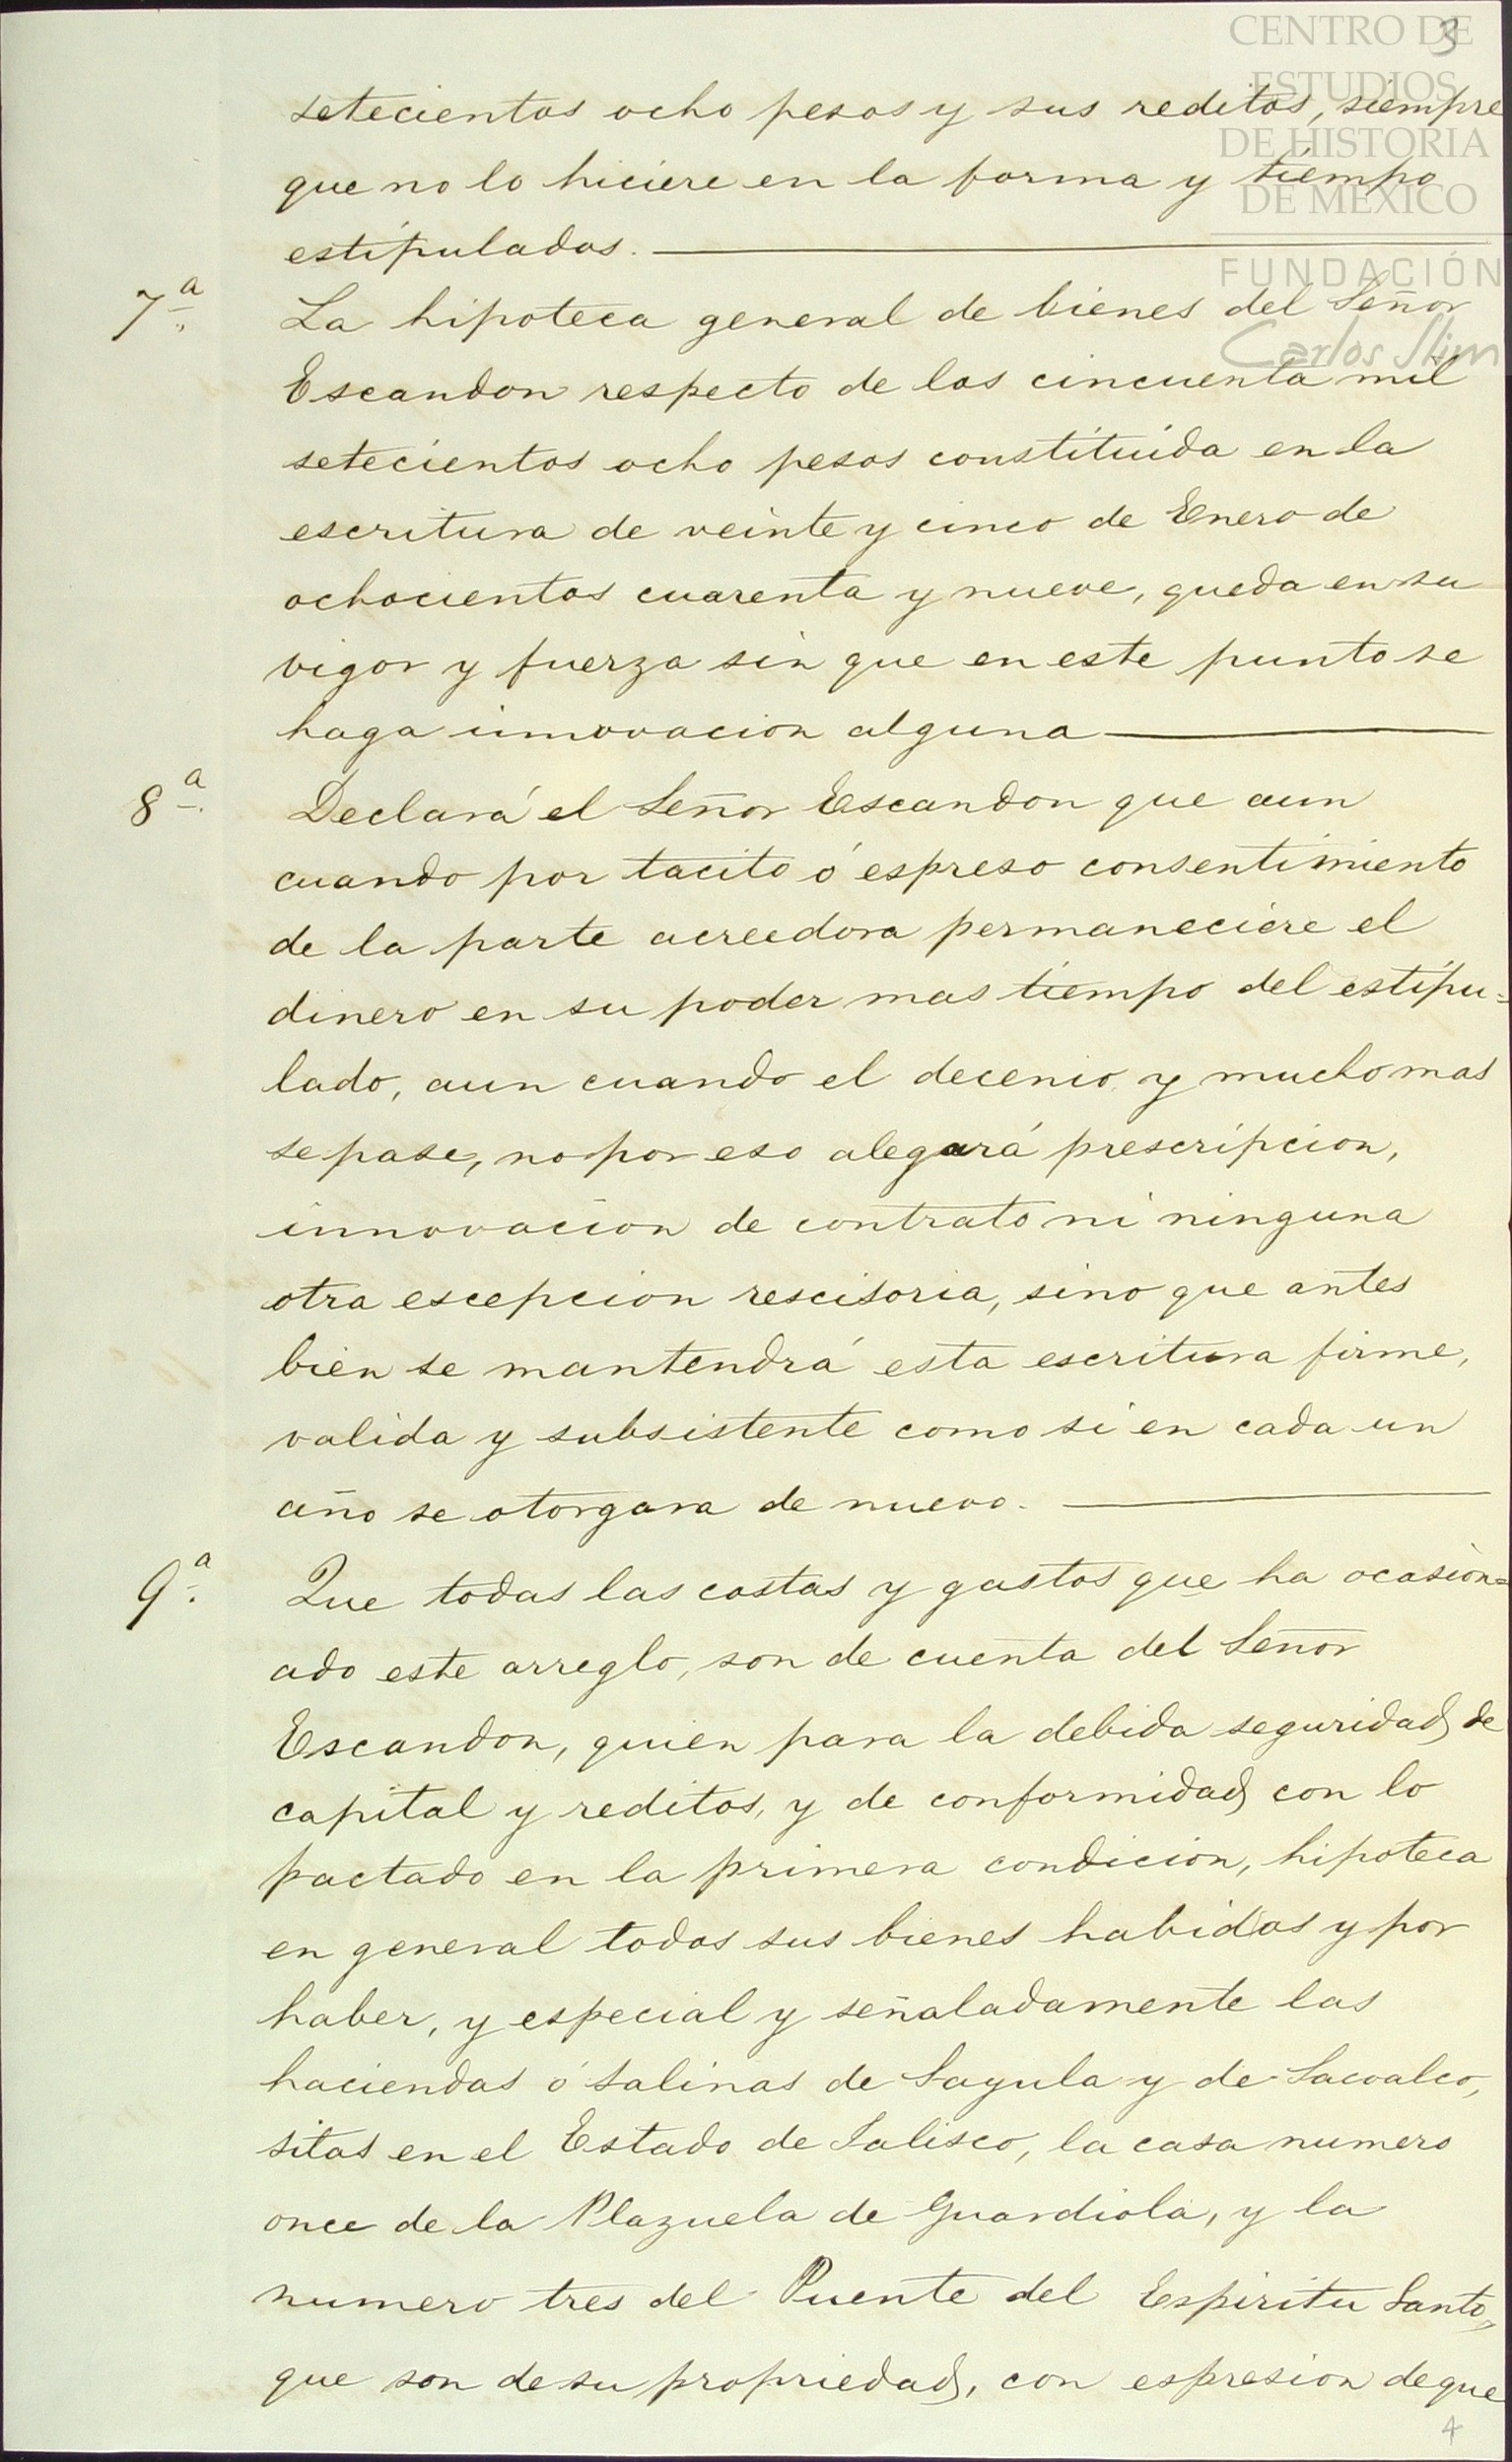 3
CENTRO DE
ESTUDIOS
DE HISTORIA
DE MEXICO
FUNDACIÓN
Carlos Slim
setecientos ocho pesos y sus reditos, siempre
que no lo hiciere en la forma y tiempo
estipulados.
7ª La hipoteca general de bienes del Señor
Escandon respecto de los cincuenta mil
setecientos ocho pesos constituida en la
escritura de veinte y cinco de Enero de
ochocientos cuarenta y nueve, queda en su
vigor y fuerza sin que en este punto se
haga innovacion alguna
8ª Declará el Señor Escandon que aun
cuando por tacito ó espreso consentimiento
de la parte acreedora permaneciere el
dinero en su poder mas tiempo del estipu=
lado, aun cuando el decenio y mucho mas
se pase, no por eso alegará prescripcion,
innovacion de contrato ni ninguna
otra escepcion rescisoria, sino que antes
bien se mantendrá esta escritura firme,
valida y subsistente como si en cada un
año se otorgara de nuevo.
9ª Que todas las costas y gastos que ha ocasion=
ado este arreglo, son de cuenta del Señor
Escandon, quien para la debida seguridad de
capital y reditos, y de conformidad con lo
pactado en la primera condicion, hipoteca
en general todos sus bienes habidos y por
haber, y especial y señaladamente las
haciendas ó salinas de Sayula y de Sacoalco,
sitas en el Estado de Jalisco, la casa numero
once de la Plazuela de Guardiola, y la
numero tres del Puente del Espiritu Santo,
que son de su propriedad, con espresion de que
4